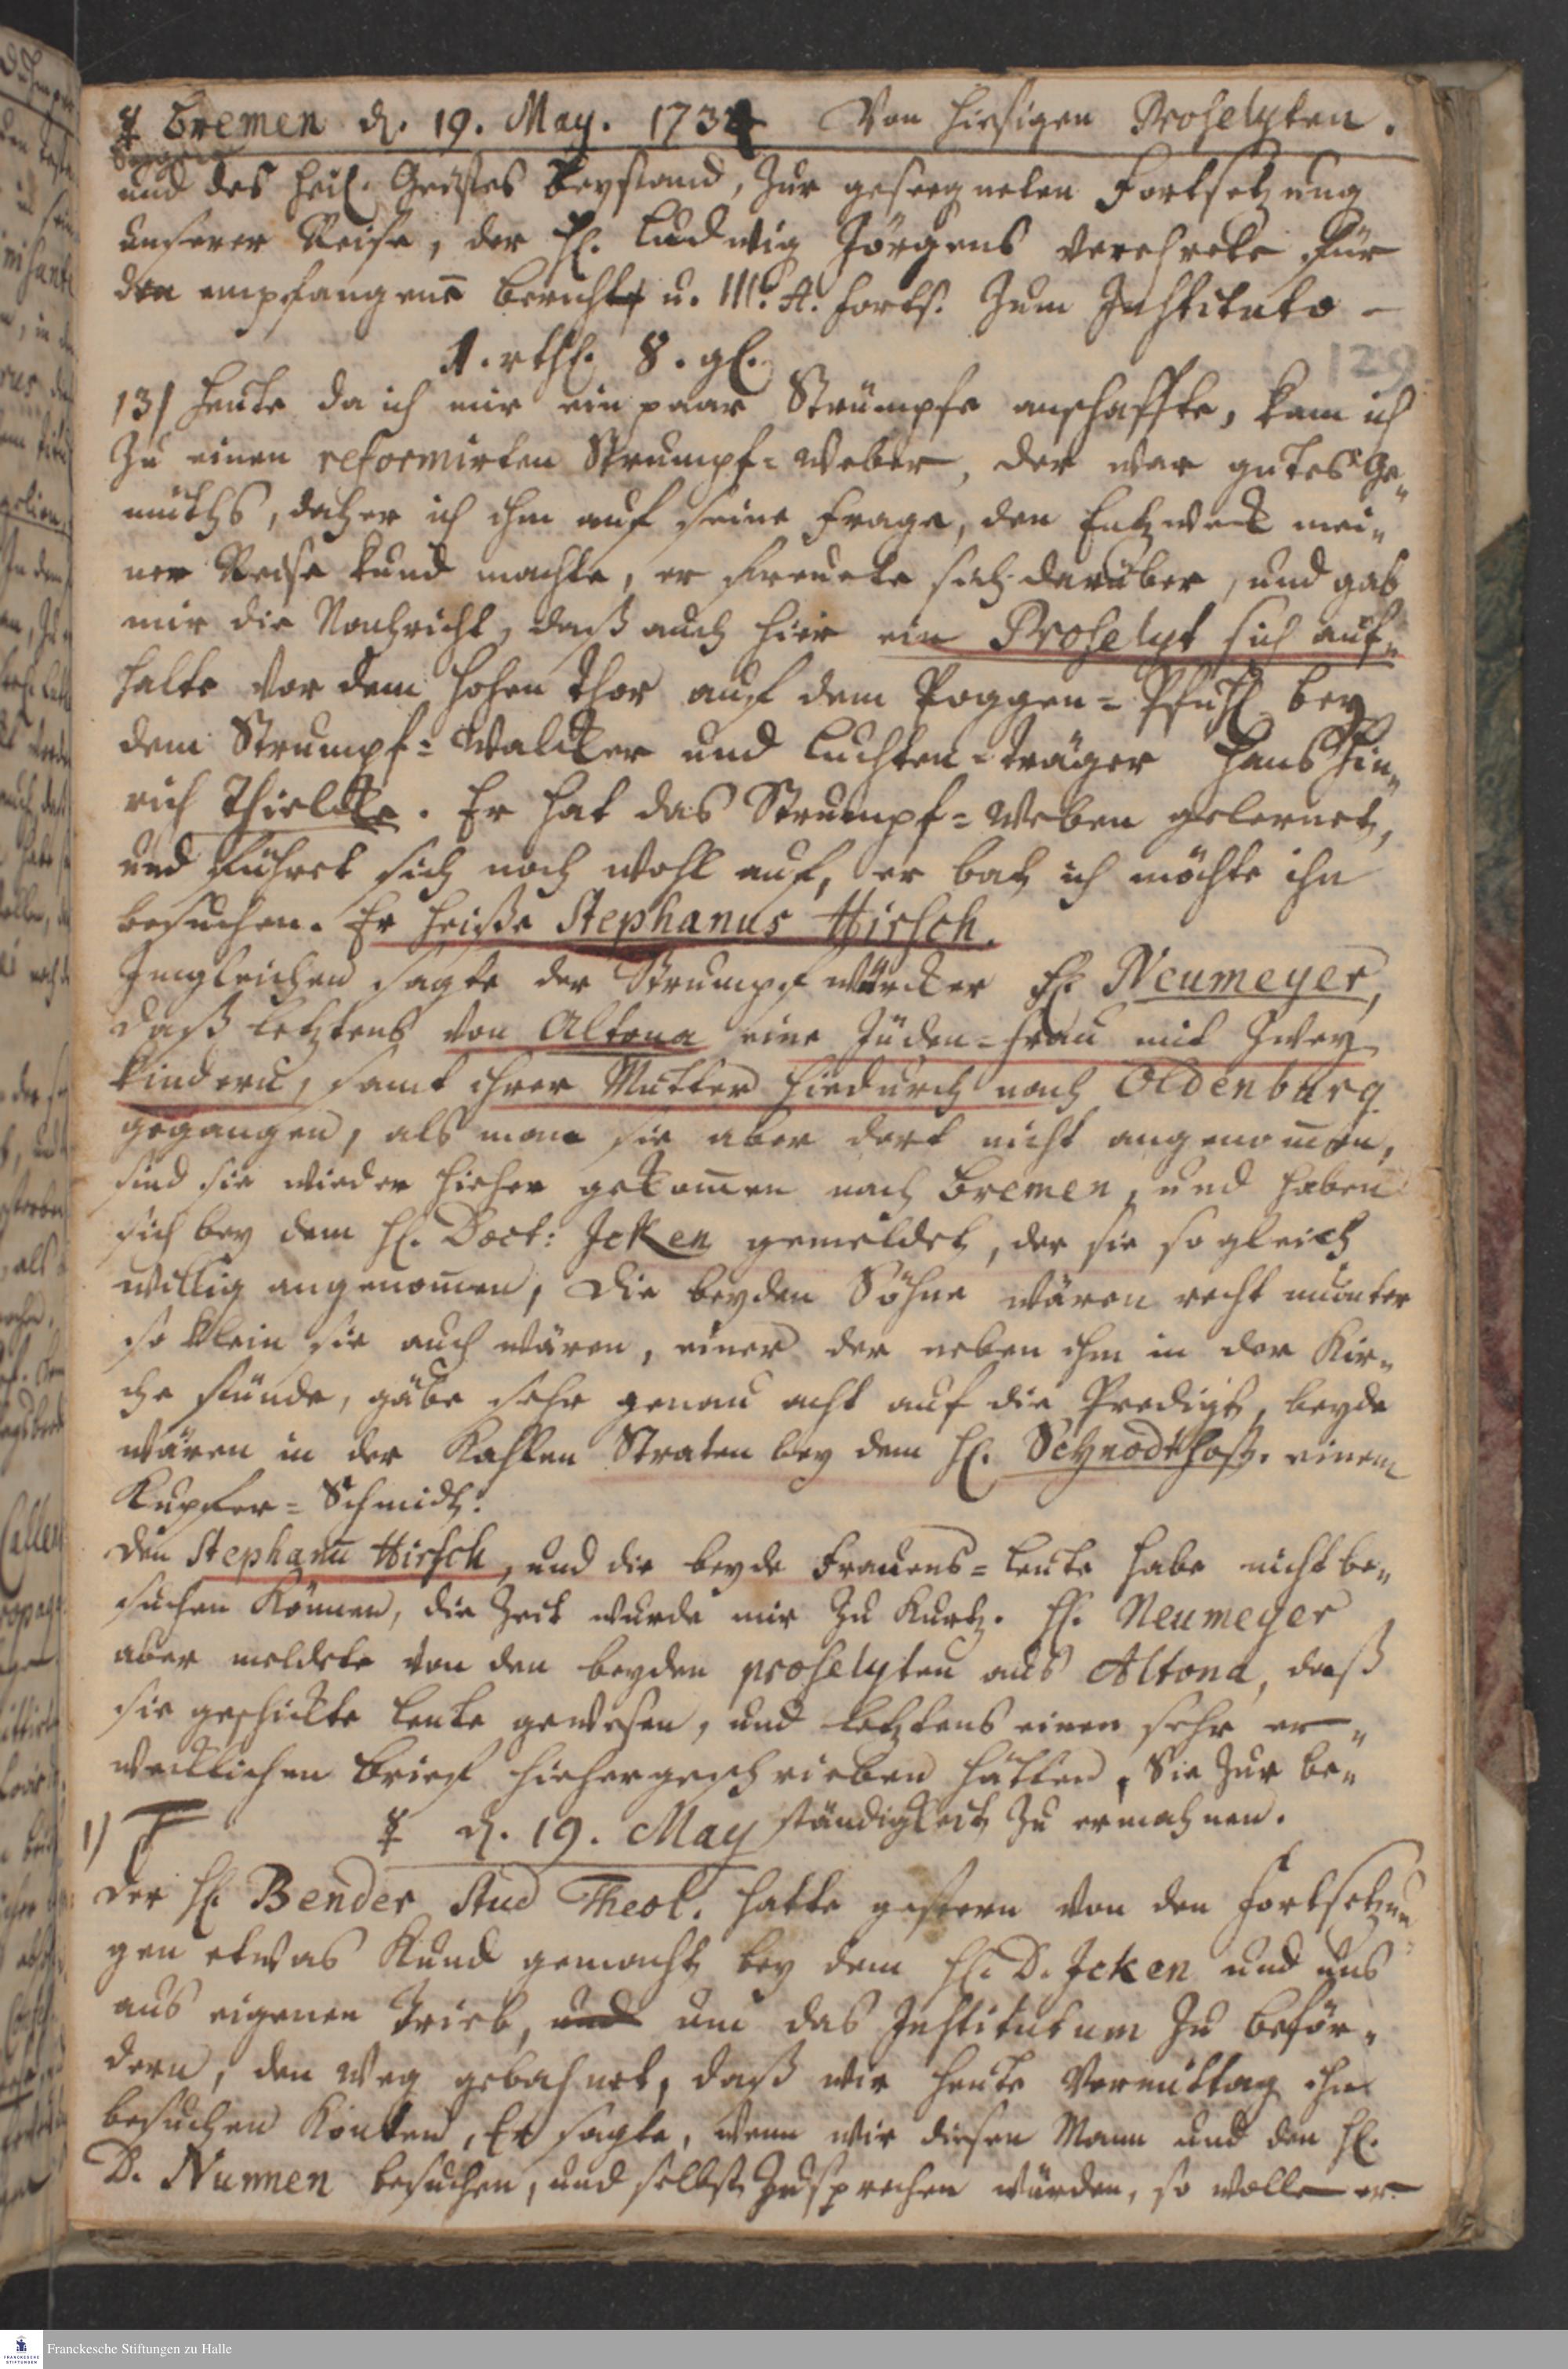 ☿ Bremen d. 19. May. 1734 Von hiesigen Proselyten.
Seegen
und des heil. Geistes Beystand, zur geseegneten Fortsetzung
unserer Reise, der H. Ludwig Jörgens verehrete für
den empfangenē Bericht u. III. A. Forts. zum Instituto –
1. rthl. 8. gl.
129
13/ Heute da ich mir ein paar Strümpfe anschaffte, kam ich
zu einen reformirten Strumpf=Weber, der war gutes Ge„
müths, daher ich ihm auf seine Frage, den Entzweck mei„
ner Reise kund machte, er freuete sich darüber, und gab
mir die Nachricht, daß auch hier ein Proselyt sich auf„
halte vor dem hohen Thor auf dem Poggen=Pfuhl bey
dem Strumpf=Walcker und Luchten=träger Hans Hin„
rich Thielcke. Er hat das Strumpf=Weben gelernet,
und führet sich noch wohl auf, er bat ich möchte ihn
besuchen. Er heiße Stephanus Hirsch.
Imgleichen sagte der Strumpfwürcker H. Neumeyer,
daß letztens von Altona eine Jüden=Frau mit zwey
Kindern, samt ihrer Mutter hiedurch nach Oldenburg
gegangen, als man sie aber dort nicht angenom̄en,
sind sie wieder hieher gekom̄en nach Bremen, und haben
sich bey dem H. Doct: Jcken gemeldet, der sie sogleich
willig angenom̄en, Die beyden Söhne wären recht munter
so klein sie auch wären, einer der neben ihm in der Kir„
che stünde, gäbe sehr genau acht auf die Predigt, beyde
wären in der Kahlen Straten bey dem H. einem
Kupfer=Schmidt.
Den Stephanū Hirsch, und die beyde Frauens=Leute habe nicht be„
suchen können, die Zeit wurde mir zu kurtz. H. Neumeyer
aber meldete von den beyden proselyten aus Altona, daß
sie geschickte Leute gewesen, und letztens einen sehr er„
wecklichen Brief hiehergeschrieben hätten, Sie zur Be„
ständigkeit zu ermahnen.
1) ☿ d. 19. May
Der H. Bender Stud Theol. hatte gestern von den Fortsetzun„
gen etwas kund gemacht bey dem H. D. Jcken und uns
aus eigenen Trieb, und um das Institutum zu beför„
dern, den Weg gebahnet, daß wir heute Vormittag ihn
besuchen könten, Er sagte, wenn wir diesen Mann und den H.
D. Nunnen besuchen, und selbst zusprechen würden, so wolle er
Franckesche Stiftungen zu Halle